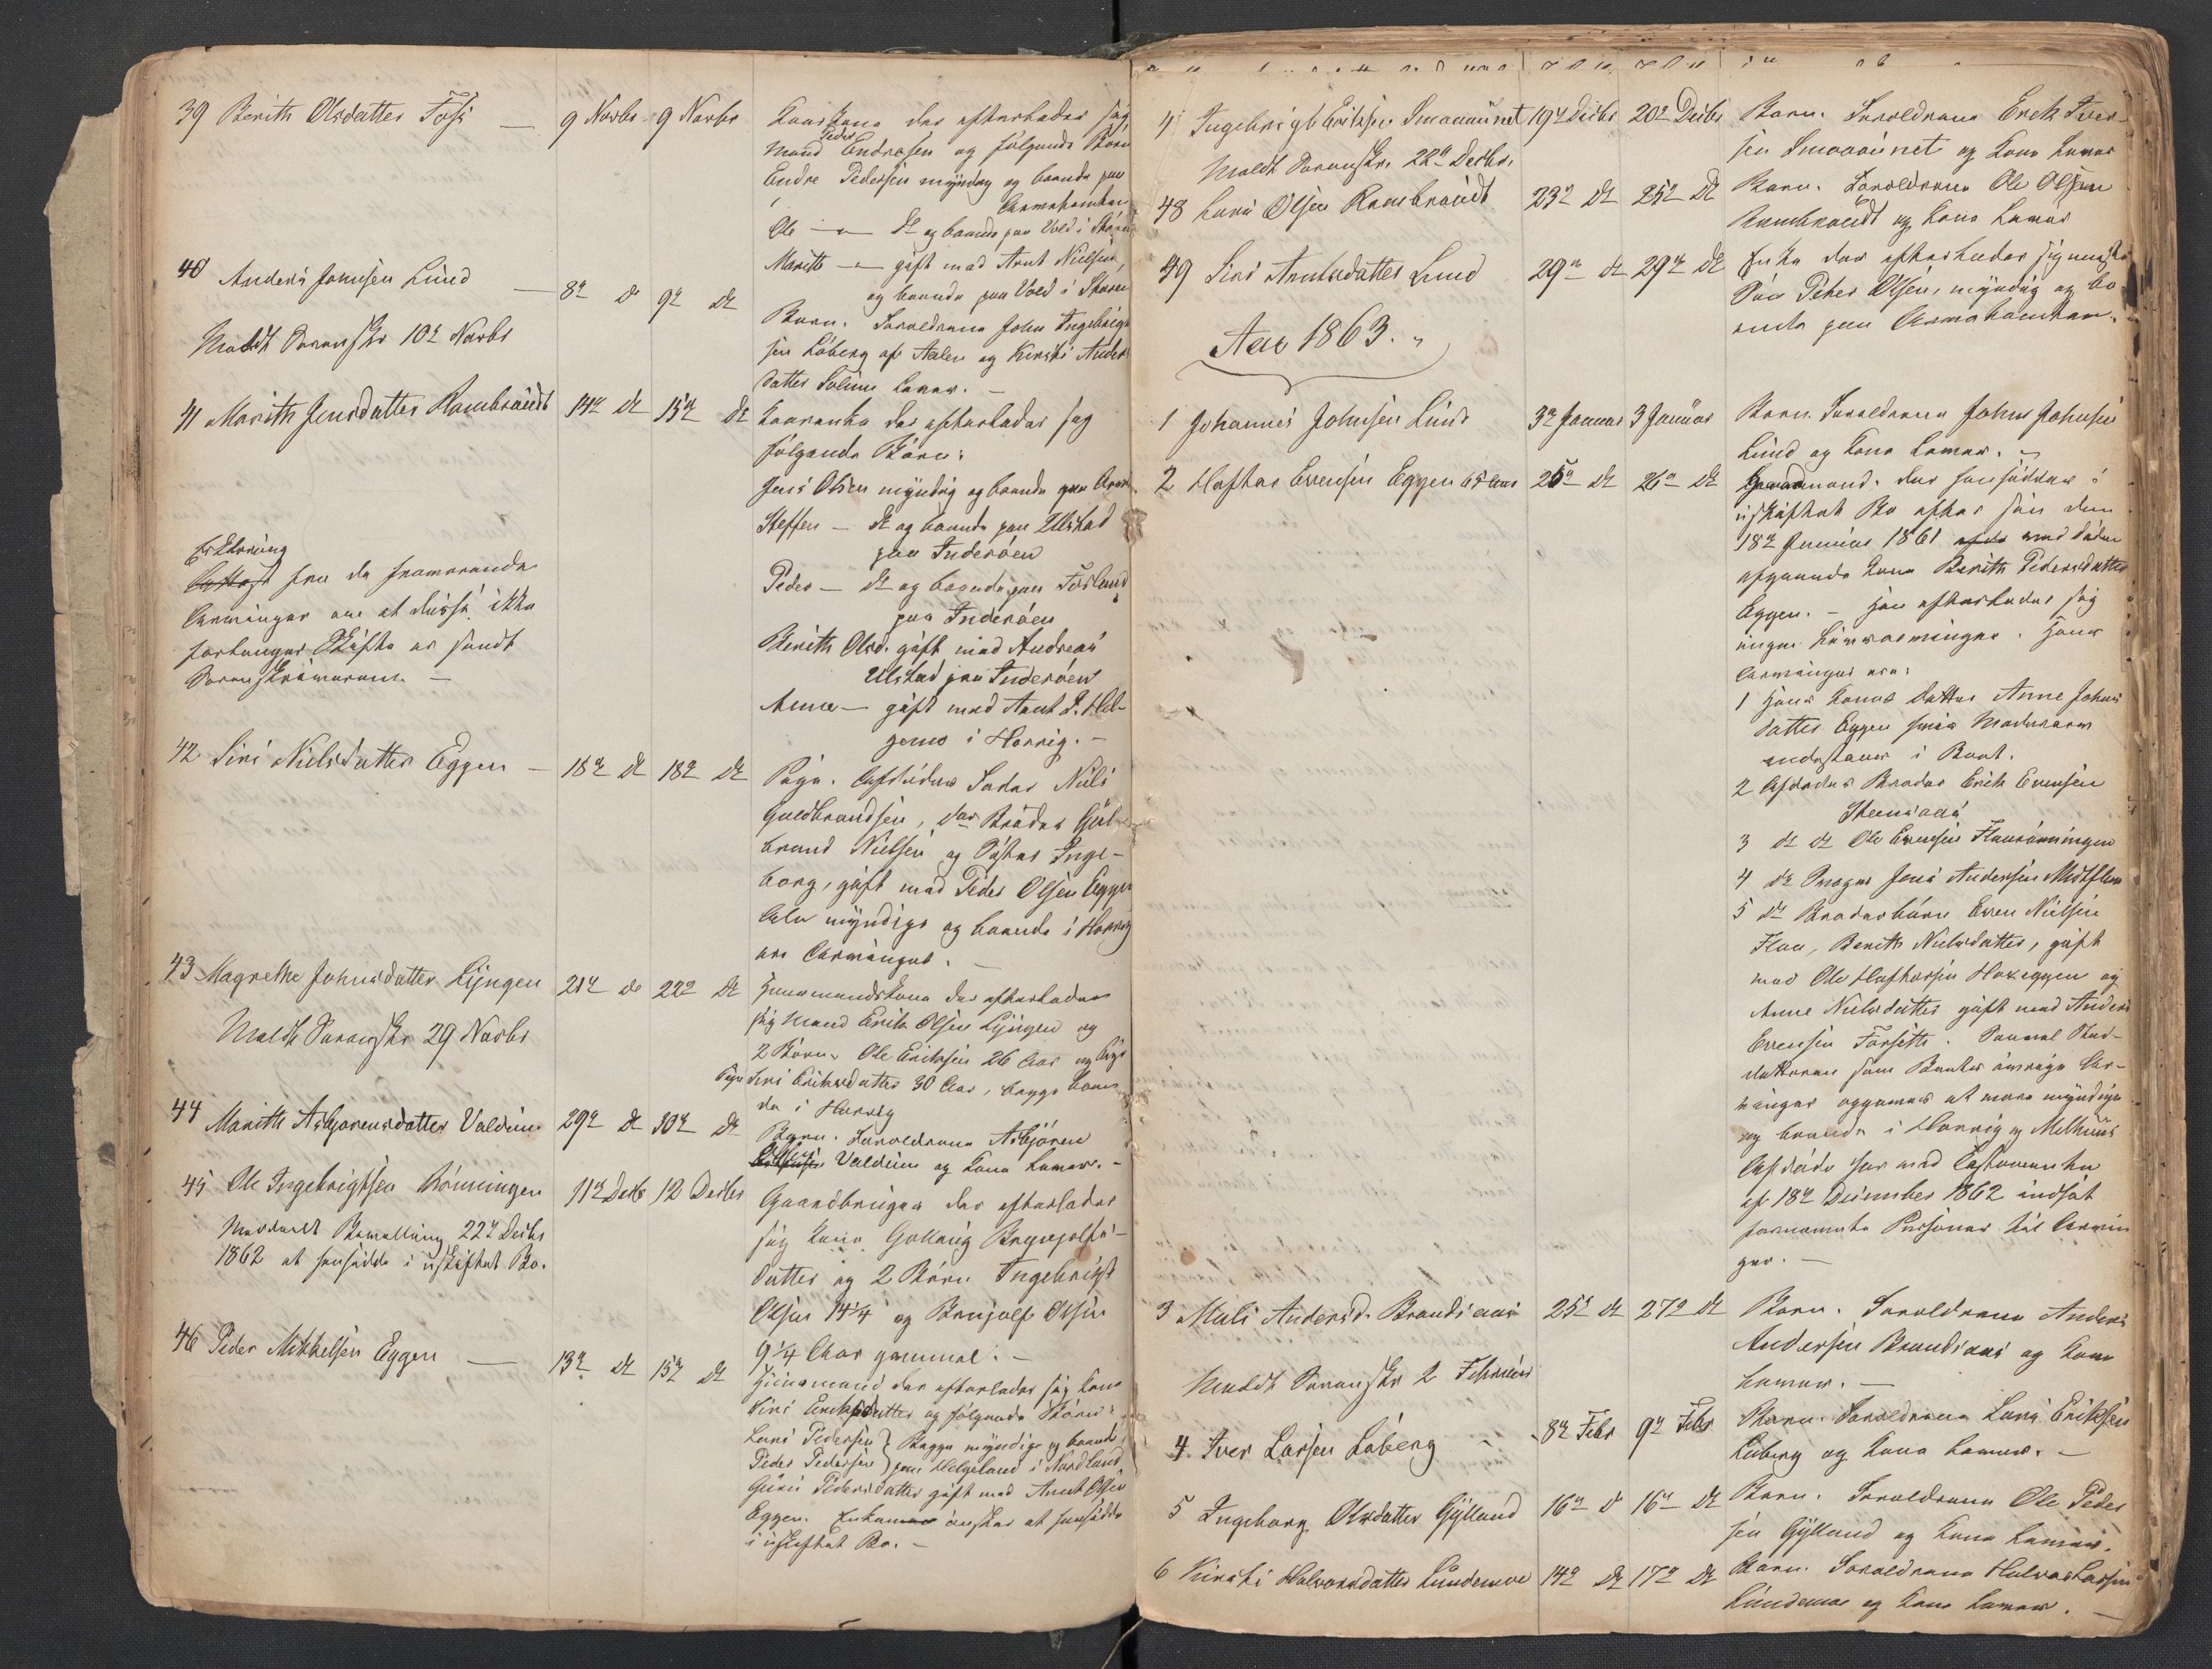 39 Berith Olsdatter Foss — 9 Novbr 9 Novbr Kaarkone der efterlader sig
Mand Peder Endresen og følgende Børn
Endre Pedersen myndig og boende paa
Ole — d° og boende paa Vold i Støren
Marith — gift med Arnt Nielsen,
og boende paa Vold i Støren
40 Anders Johnsen Lund — 8de d° 9de d°
Meldt Sorenskr 10de Novbr
Barn. Forældrene John Ingebrigt
sen Løberg af Aalen og Kirsti Anders
datter Solem lever. —
41 Marith Jensdatter Rambraadt 14de d° 15de d° Kaarenke der efterlader sig
følgende Børn:
Jens Olsen myndig og boende paa
Steffen — d° og boende paa Ullstad
paa Inderøen
Peder — d° og boende paa
paa Inderøen
Berith Olsd. gift med Andreas
Ulstad paa Inderøen
Anne — gift med Arnt P. Hel-
gemo i Horrig. —
Erklæring
fra de fremmødende
Arvinger om at disse ikke
forlanger Skifte er sendt
Sorenskriveren. —
42 Siri Nielsdatter Eggen — 18de d° 18de d° Pige. Afdødes Fader Niels
Guldbrandsen, Brøder Gul-
brand Nielsen og Søster Inge-
borg, gift med Peder Olsen Eggen
alle myndige og boende i Horrig
ere Arvinger. —
43 Magrethe Johnsdatter Lijngen 21de d° 22de d° Huusmandskone der efterlader
sig Mand Erik Olsen Lijngen og
2 Børn. Ole Eriksen 26 Aar og
Pige Siri Eriksdatter 30 Aar, begge boen
de i Horrig
Meldt Sorenskr 29 Novbr
44 Marith Asbjørnsdatter Valdum 29de d° 30de d° Barn. Forældrene Asbjøren
Valdum og Kone lever. —
45 Ole Ingebrigtsen Rønningen 11de Decbr 12 Decbr Gaardbruger der efterlader
sig Kone Gollaug Brynjolfs-
datter og 2 Børn Ingebrigt
Olsen 14¼ og Brujolf Olsen
9¼ Aar gammel. —
Meddeelt Bevilling 22de Decbr
1862 at hensidde i uskiftet Bo.
46 Peder Mikkelsen Eggen — 13de d° 15de d° Huusmand der efterlader sig Kone
Siri Eriksdatter og følgende Børn:
Lars Pedersen } Begge myndige og boende
Peder Pedersen } paa Helgeland i Nordland
Guru Pedersdatter gift med Arnt Olsen
Eggen. Enken ønsker at hensidde
i uskiftet Bo. —
4 Ingebrigt Eriksen Smaaunet 19de Decbr 20de Decbr Barn. Forældrene Erik Iver-
sen Smaaunet og Kone lever
Meldt Sorenskr. 22de Decbr.
48 Lars Olsen Rambraadt 23de d° 25de d° Barn. Forældrene Ole Olsen
Rambraadt og Kone lever
49 Siri Arntsdatter Lund 29de d° 29de d° Enke der efterlader sig eneste
Søn Peter Olsen, myndig og bo
ende paa
Aar 1863.
1 Johannes Johnsen Lund 3de Januar 3 Januar Barn. Forældrene John Johnsen
Lund og Kone lever. —
2 Haftor Evensen Eggen 65 Aar 25de d° 26de d° Gaardmand. der hensidder i
uskiftet Bo efter sin den
18de Januar 1861 ved Døden
afgaaede Kone Berith Pedersdatter
Eggen. — Han efterlader sig
ingen Livsarvinger. Hans
Arvinger ere:
1 Hans Kones Datter Anne Johns
datter Eggen hvis Mødrearv
indestaar i Boet.
2 Afdødes Broder Erik Evensen
Stensaas
3 d° d° Ole Evensen Flaarønningen
4 d° Svoger Jens Andersen Midtflaa
5 d° Broderbørn Even Nielsen
Flaa, Berith Nielsdatter, gift
med Ole Haftorsen Hoveggen og
Anne Nielsdatter gift med Anders
Evensen Forsette. Saavel Sted-
datteren som Boets øvrige Ar-
vinger opgives at være myndige
og boende i Horrig og Melhuus
Afdøde har ved Testamente
af 18de December 1862 indsat
fornævnte Personer til Arvin
ger. —
3 Mali Andersd. Brandsaas 25de d° 27de d° Barn. Forældrene Anders
Andersen Brandsaas og Kone
lever. —
Meldt Sorenskr 2 Februar
4. Iver Larsen Løberg — 8de Febr 9de Febr Barn. Forældrene Lars Eriksen
Løberg og Kone lever. —
5 Ingeborg Olsdatter Gylland 16de d° 16de d° Barn. Forældrene Ole Peder
sen Gylland og Kone lever.
6 Kirsti Halvorsdatter Lundemoe 14de d° 17de d° Barn. Forældrene Halvor Larsen
Lundemoe og Kone lever. —